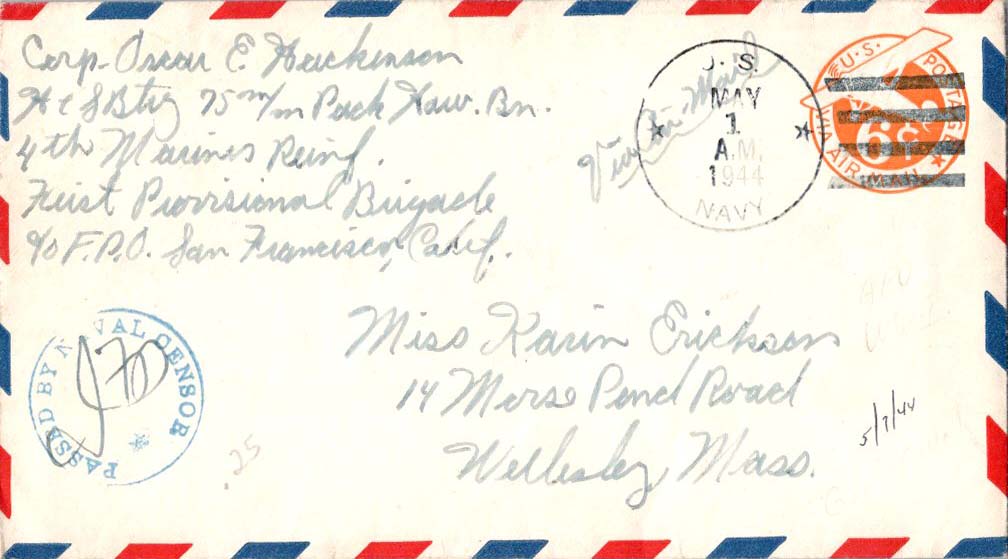 Corp. Oscar E. Hackinson
H & S Btry 75 m/m Pack How. Bn.
4th Marines Reinf.
First Provisional Brigade
c/o F.P.O. San Francisco, Calif.
Via Air Mail
U.S.
MAY
1
A.M.
1944
NAVY
U.S. POSTAGE
6¢
VIA AIR MAIL
PASSED BY NAVAL CENSOR
Miss Karin Erickson
14 Morse Pond Road
Wellesley, Mass.
5/1/44
25